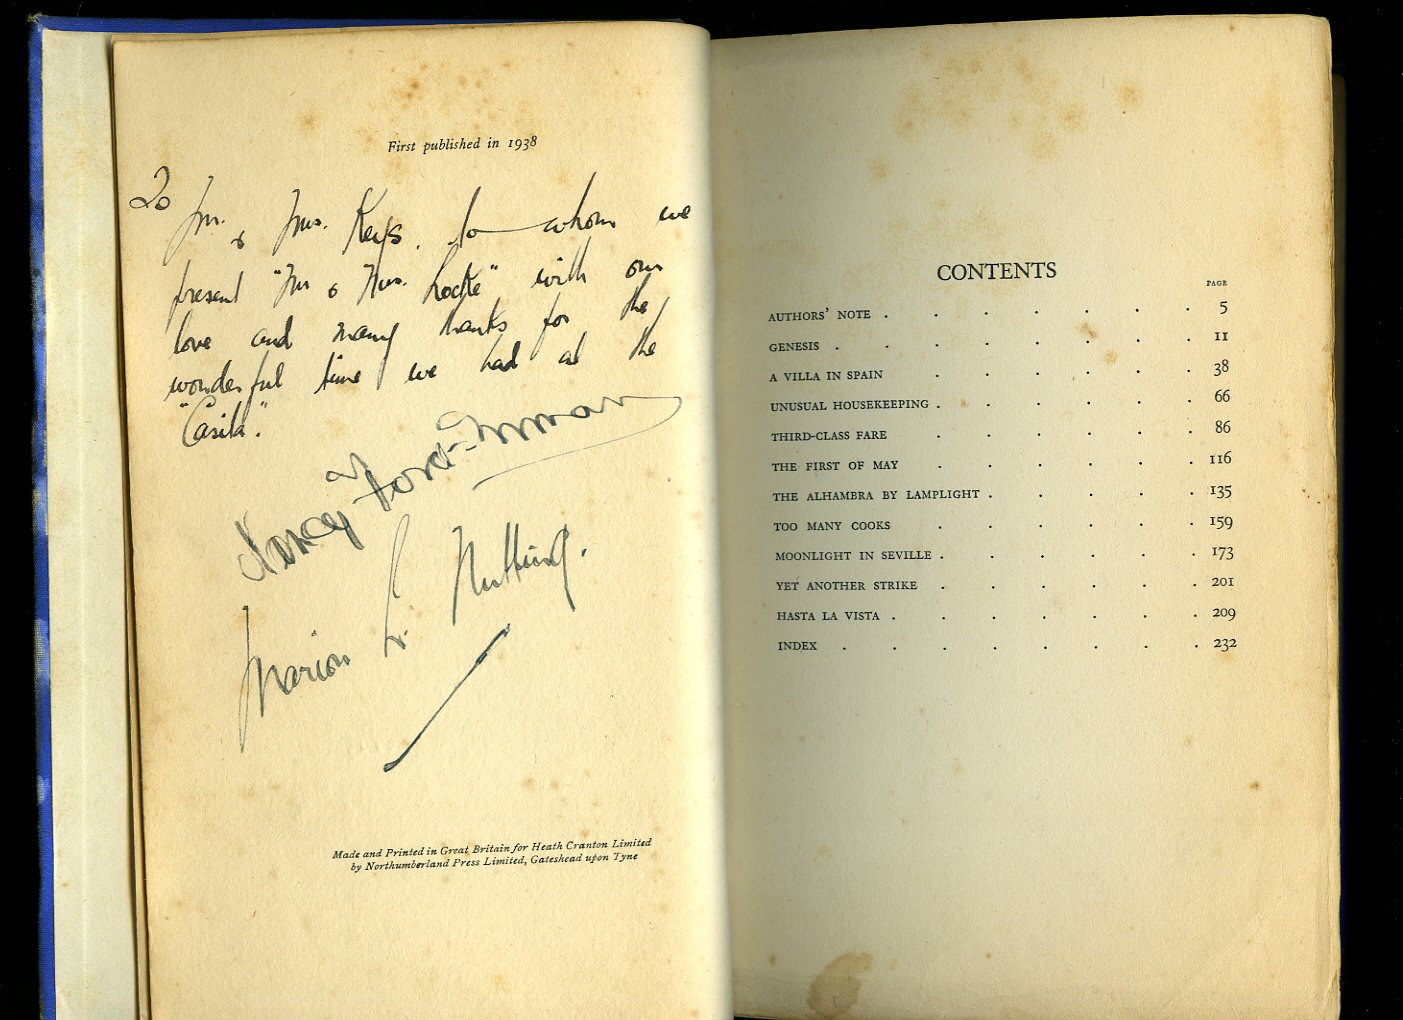 First published in 1938
To
Mr. & Mrs. Keys, to whom we
present "Mr & Mrs. Locke" with our
love and many thanks for the
wonderful time we had at the
"Casita."
Nancy Ford-Inman
Marion L. Nutting.
Made and Printed in Great Britain for Heath Cranton Limited
by Northumberland Press Limited, Gateshead upon Tyne
CONTENTS
PAGE
AUTHORS' NOTE . . . . . . . 5
GENESIS . . . . . . . . 11
A VILLA IN SPAIN . . . . . . 38
UNUSUAL HOUSEKEEPING . . . . . . 66
THIRD-CLASS FARE . . . . . . 86
THE FIRST OF MAY . . . . . . 116
THE ALHAMBRA BY LAMPLIGHT . . . . . 135
TOO MANY COOKS . . . . . . 159
MOONLIGHT IN SEVILLE . . . . . . 173
YET ANOTHER STRIKE . . . . . . 201
HASTA LA VISTA . . . . . . . 209
INDEX . . . . . . . . 232